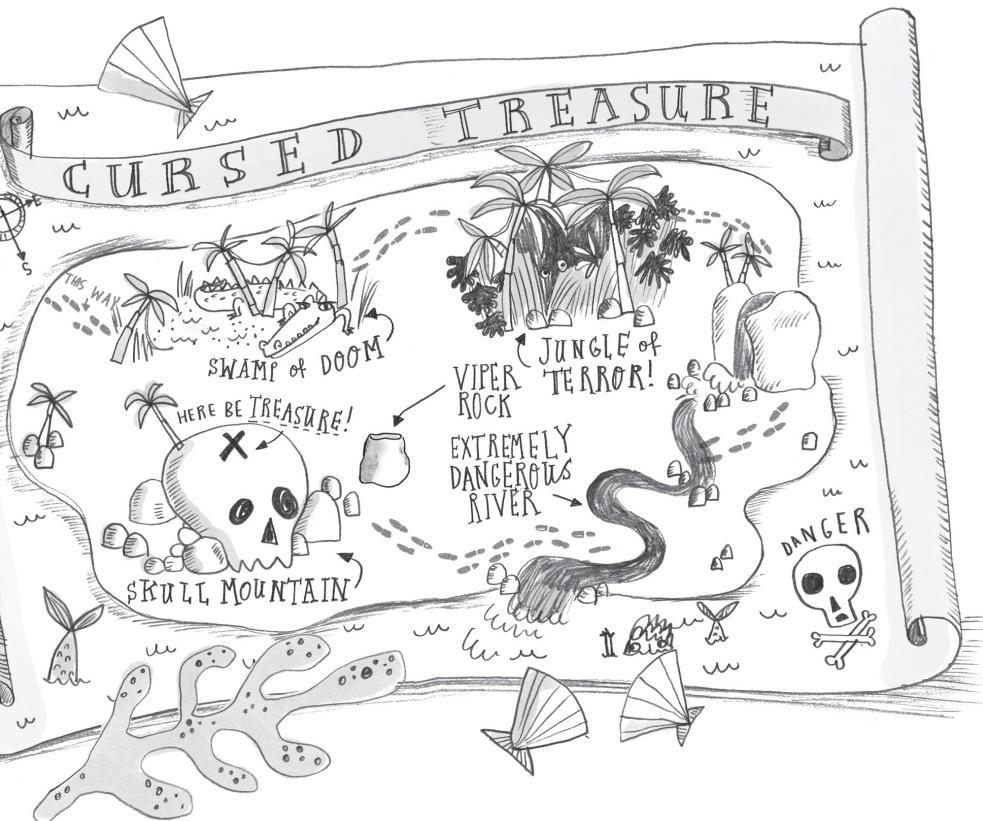 CURSED TREASURE
E
S
THIS WAY
SWAMP of DOOM
JUNGLE of
TERROR!
VIPER
ROCK
HERE BE TREASURE!
X
EXTREMELY
DANGEROUS
RIVER
SKULL MOUNTAIN
DANGER